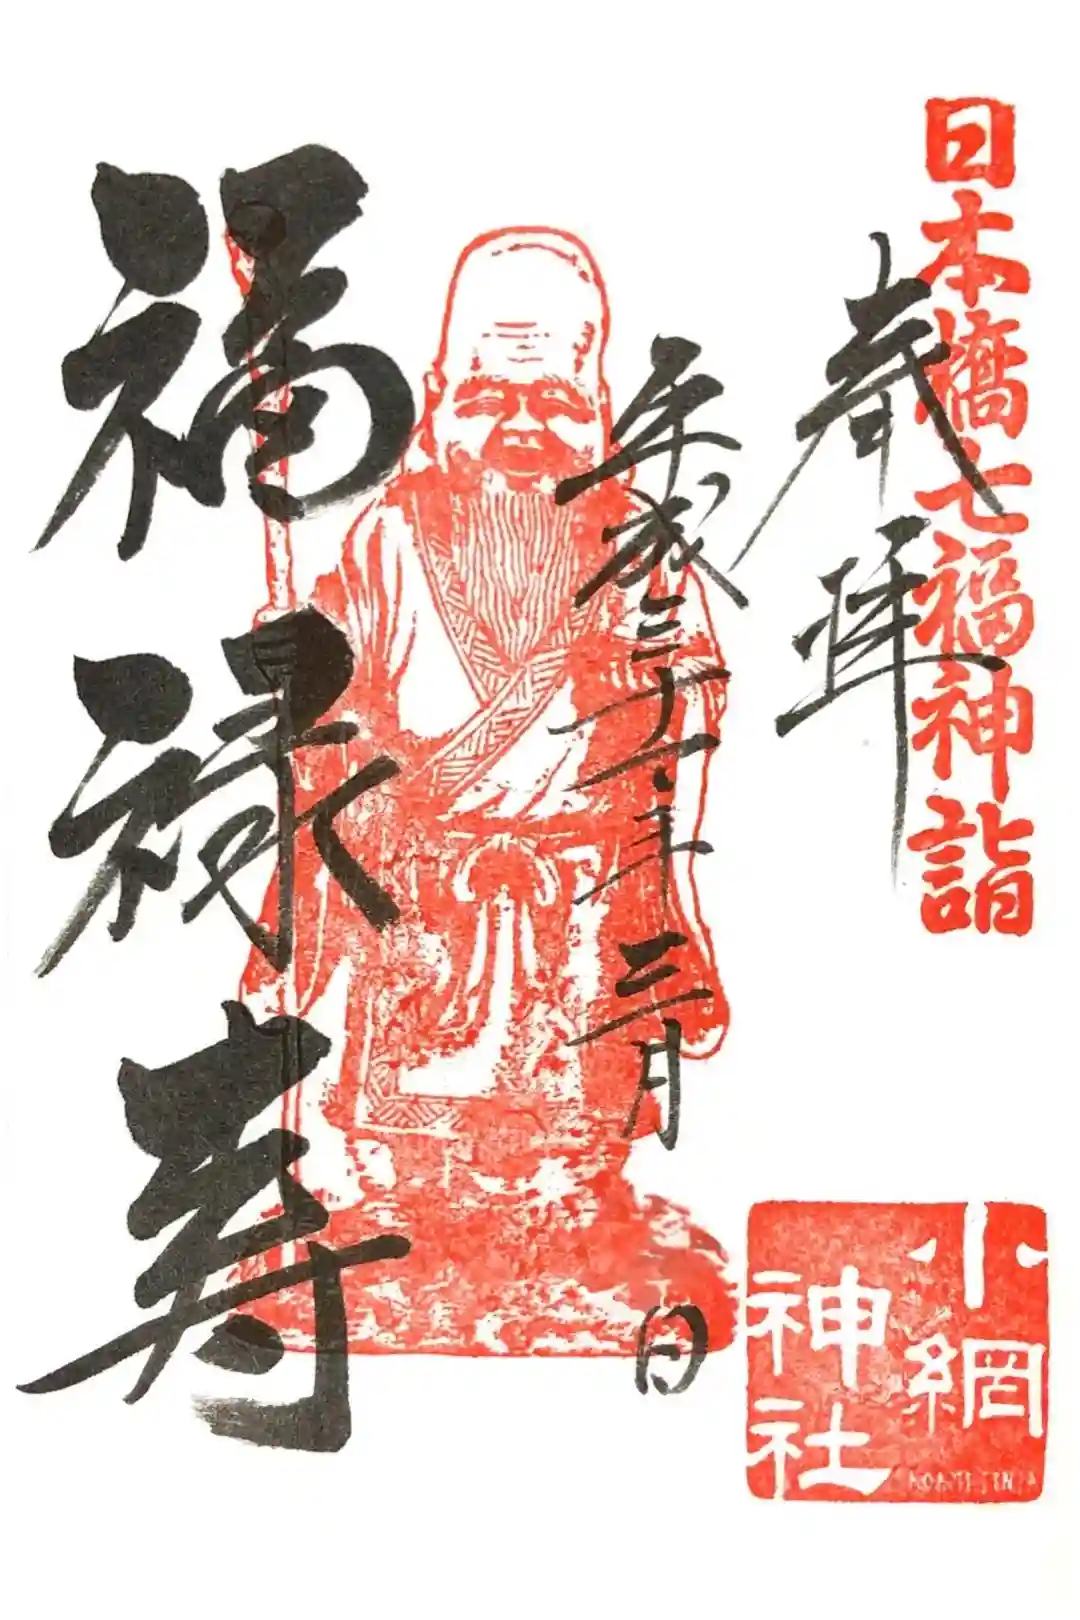 日本橋七福神詣
奉拝
平成三十一年三月 日
福禄寿
小網
神社
KOAMI JINJA